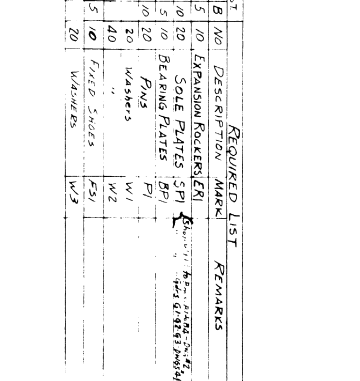 REQUIRED LIST
B NO DESCRIPTION MARK REMARKS
5 10 EXPANSION ROCKERS ER1
10 20 SOLE PLATES SP1
5 10 BEARING PLATES BP1
10 20 PINS P1
20 Washers W1
40 " W2
5 10 FIXED SHOES FS1
20 WASHERS W3